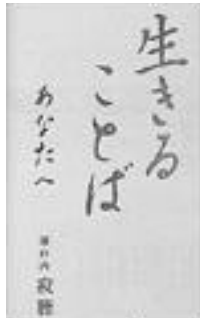 生きる
ことば
あなたへ
瀬戸内 寂聴